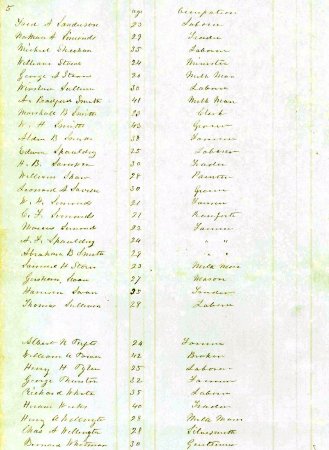 5
age Occupation
Fred A Sanderson 23 Laborer
Nathan H Simonds 29 Trader
Michael Sheehan 35 Laborer
William Stone 24 Minister
George S Stearns 21 Milk Man
Winslow 30 Laborer
A. Bradford Smith 41 Milk Man
Marshall B Smith 23 Clerk
W. H. Smith 43 Grocer
Alden B 38 Farmer
Edwin Spaulding 25 Laborer
H. B. Sampson 30 Trader
William Shaw 28 Painter
Leonard G Saville 30 Grocer
W. H. Simonds 21 Farmer
C. F. Simonds 21
Simond 23 Farmer
A. F. Spaulding 24 " "
Abraham B Smith 29 " "
Samuel H Stone 23 Milk Man
Gersham Swan 27 Mason
Harrison Swan 33 Trader
Thomas Sullivan 28 Laborer
Albert N Tufts 24 Farmer
William A Tower 42 Broker
Henry H Tyler 25 Laborer
George Thurston 32 Farmer
Richard White 35 Laborer
Hiram Weeks 40 Trader
Henry A Wellington 23 Milk Man
Chas A Wellington 28
Bernard Whitman 30 Gentleman